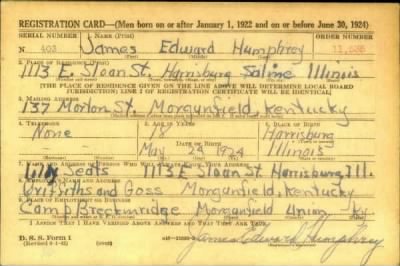 REGISTRATION CARD—(Men born on or after January 1, 1922 and on or before June 30, 1924)
SERIAL NUMBER 1. NAME (Print) ORDER NUMBER
N 403 James Edward Humphrey 11,535
(First) (Middle) (Last)
2. PLACE OF RESIDENCE (Print)
1113 E. Sloan St. Harrisburg Saline Illinois
[THE PLACE OF RESIDENCE GIVEN ON THE LINE ABOVE WILL DETERMINE LOCAL BOARD
JURISDICTION; LINE 2 OF REGISTRATION CERTIFICATE WILL BE IDENTICAL]
3. MAILING ADDRESS
137 Morton St. Morganfield, Kentucky
4. TELEPHONE 5. AGE IN YEARS 6. PLACE OF BIRTH
None 18 Harrisburg
DATE OF BIRTH
May 29 1924 Illinois
7. NAME AND ADDRESS OF PERSON WHO WILL ALWAYS KNOW YOUR ADDRESS
Seats 1113 E Sloan St Harrisburg Ill.
8. EMPLOYER'S NAME AND ADDRESS
Griffiths and Goss Morganfield, Kentucky
9. PLACE OF EMPLOYMENT OR BUSINESS
Camp Breckinridge Morganfield Union Ky
I AFFIRM THAT I HAVE VERIFIED ABOVE ANSWERS AND THAT THEY ARE TRUE.
D. S. S. Form 1
James Edward Humphrey